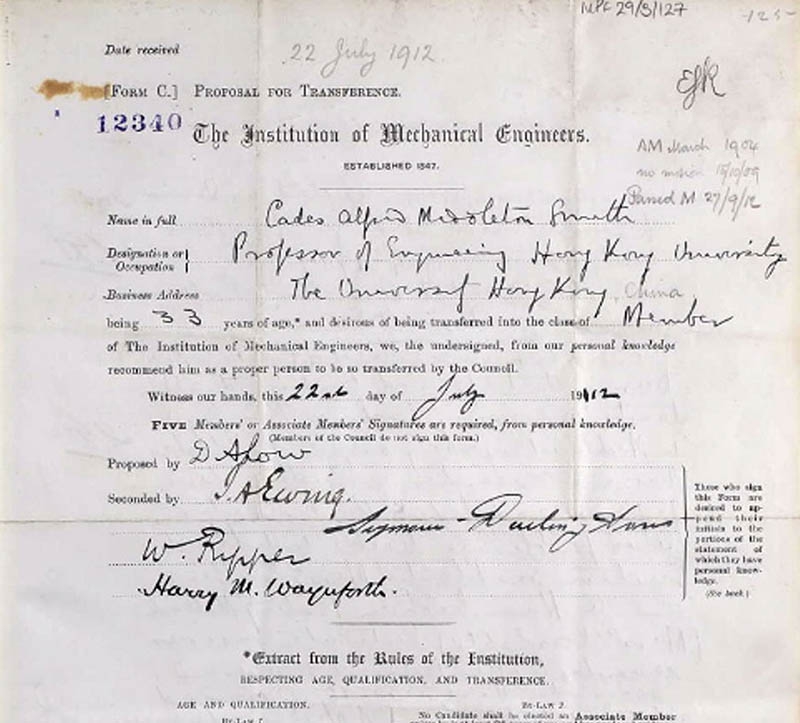 MPF 29/5/127
125
Date received 22 July 1912
[FORM C.] PROPOSAL FOR TRANSFERENCE.
12340 The Institution of Mechanical Engineers.
ESTABLISHED 1847.
AM March 1904
15/10/09
Passed M 27/9/12
Name in full Cades Alfred Middleton Smith
Designation or Occupation Professor of Engineering Hong Kong University
Business Address The University Hong Kong China
being 33 years of age,* and desirous of being transferred into the class of Member
of The Institution of Mechanical Engineers, we, the undersigned, from our personal knowledge
recommend him as a proper person to be so transferred by the Council.
Witness our hands, this 22nd day of July 1912
FIVE Members' or Associate Members' Signatures are required, from personal knowledge.
(Members of the Council do not sign this form.)
Proposed by D A Low
Seconded by J A Ewing.
W. Ripper
Harry M. Waynforth.
Those who sign
this Form are
desired to ap-
pend their
initials to the
portions of the
statement of
which they have
personal know-
ledge.
(See back)
*Extract from the Rules of the Institution,
RESPECTING AGE, QUALIFICATION, AND TRANSFERENCE.
AGE AND QUALIFICATION.
BY-LAW 2.
BY-LAW 1.
No Candidate shall be elected an Associate Member